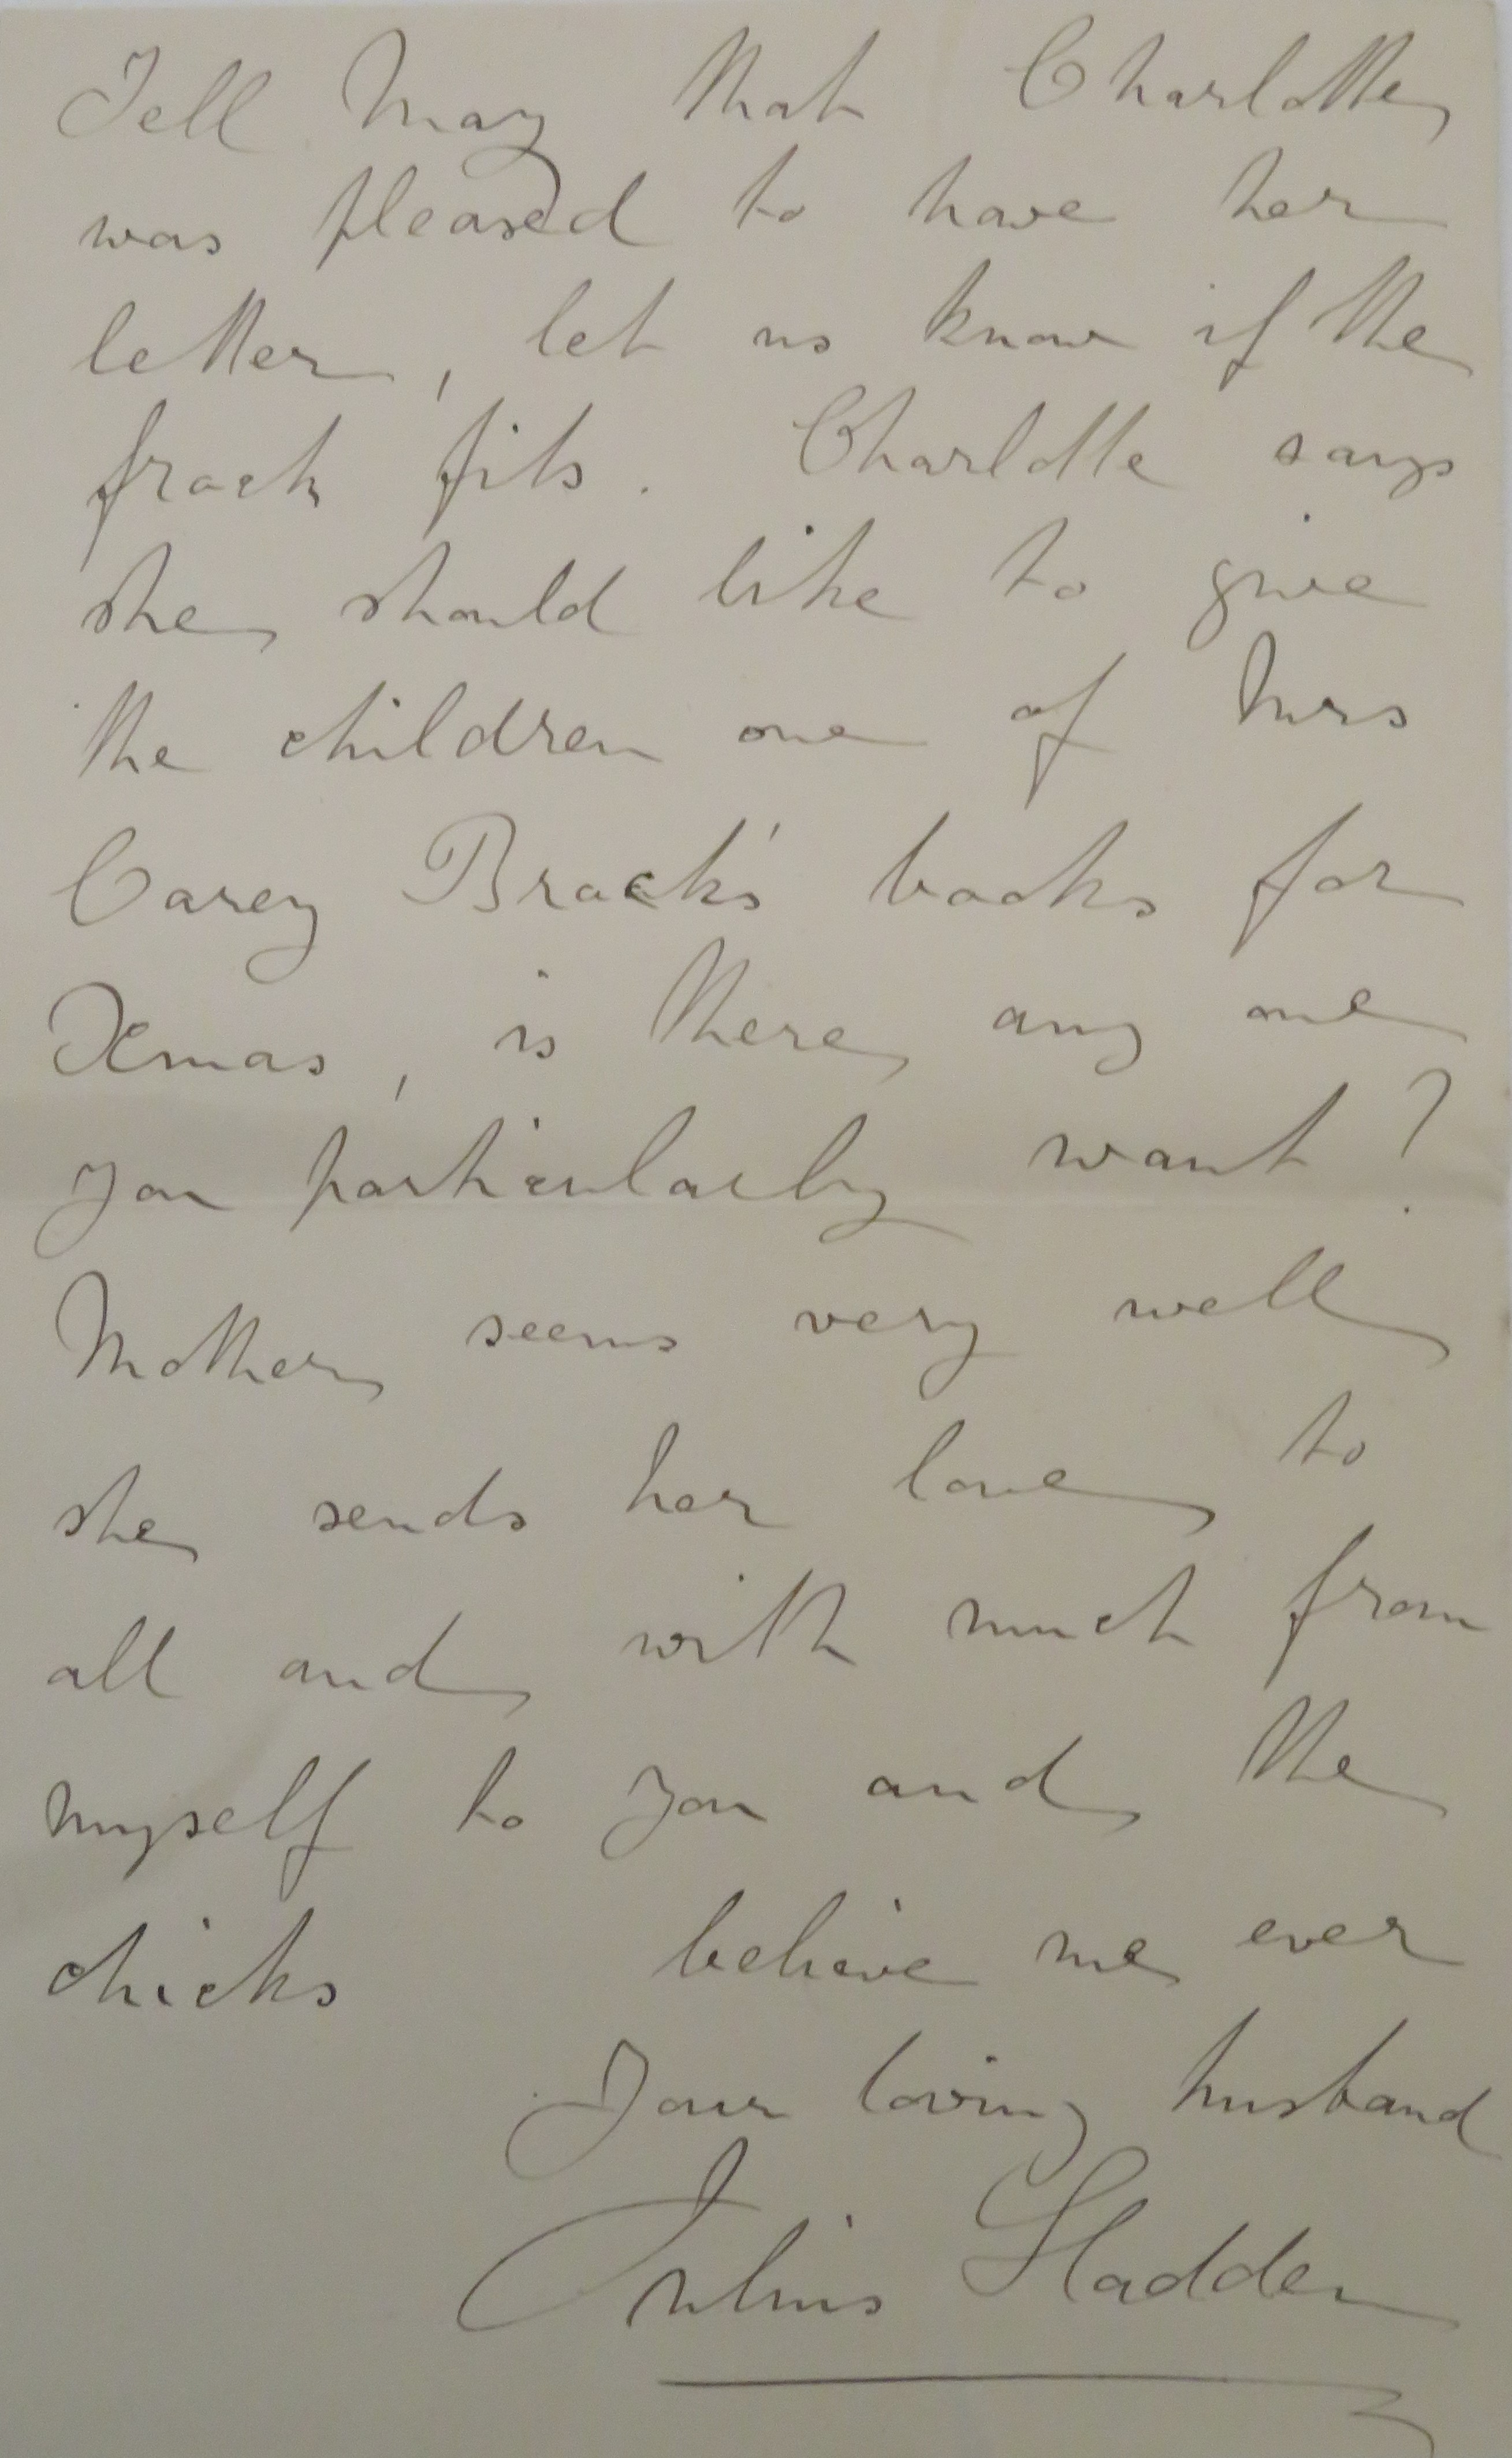 Tell May that Charlotte
was pleased to have her
letter, let us know if the
frock fits. Charlotte says
she should like to give
the children one of Mrs
Carey Brock's books for
Xmas, is there any one
you particularly want?
Mother seems very well
she sends her love to
all and with much from
myself to you and the
chicks believe me ever
Your loving husband
Julius Sladden